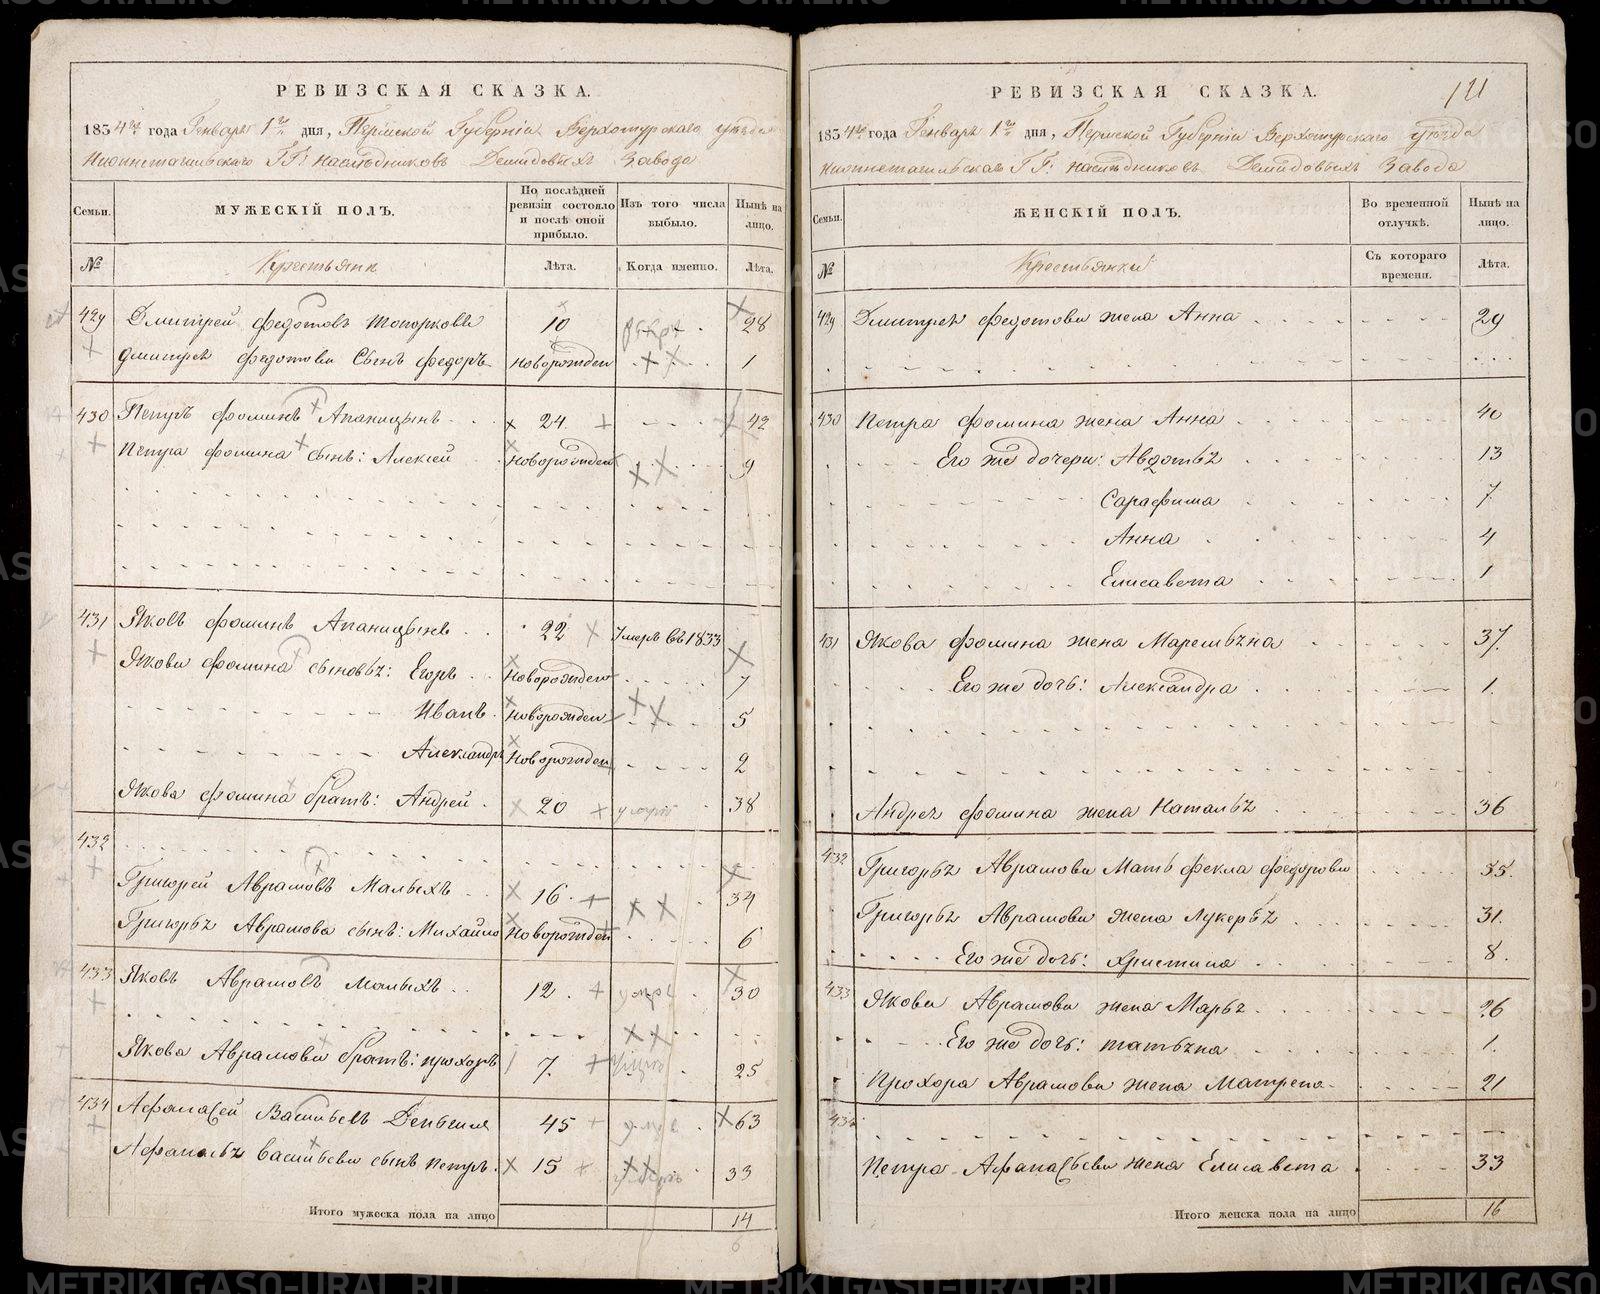 РЕВИЗСКАЯ СКАЗКА.
1834го года Генваря 1го дня, Пермской Губерніи Верхотурскаго уѣзда
Нижнетагильскаго ГГ: наслѣдниковъ Демидовыхъ Завода
Семьи. МУЖЕСКІЙ ПОЛЪ. По послѣдней ревизіи состояло и послѣ оной прибыло. Изъ того числа выбыло. Нынѣ на лицо.
№ Крестьяни Лѣта. Когда именно. Лѣта.
429 Дмитрей Федотовъ Топорковъ 10 28
Дмитрея Федотова Сынъ Федоръ новорожден 1
430 Петръ Фоминъ Апаницынъ 24 42
Петра Фомина сынъ: Алексей новорожден 9
431 Яковъ Фоминъ Апаницынъ 22 Умеръ въ 1833
Якова Фомина сыновья: Егоръ новорожден 7
Иванъ новорожден 5
Александръ новорожден 2
Якова Фомина братъ: Андрей 20 38
432
Григорей Аврамовъ Малыхъ 16 34
Григорья Аврамова сынъ: Михайло новорожден 6
433 Яковъ Аврамовъ Малыхъ 12 30
Якова Аврамова братъ: Прохоръ 7 25
434 Афанасей Васильевъ 45 63
Афанасья Васильева сынъ Петръ 15 33
Итого мужеска пола на лицо 14
6
121
РЕВИЗСКАЯ СКАЗКА.
1834го года Генваря 1го дня, Пермской Губерніи Верхотурскаго уѣзда
Нижнетагильскаго ГГ: наслѣдниковъ Демидовыхъ Завода
Семьи. ЖЕНСКІЙ ПОЛЪ. Во временной отлучкѣ. Нынѣ на лицо.
№ Крестьянкій Съ котораго времени. Лѣта.
429 Дмитрея Федотова жена Анна 29
430 Петра Фомина жена Анна 40
Его же дочери: Авдотья 13
Сарафима 7
Анна 4
Елисавета 1
431 Якова Фомина жена Маремьяна 37
Его же дочь: Александра 1
Андрея Фомина жена Наталья 36
432 Григорья Аврамова Мать Фекла Федорова 55
Григорья Аврамова жена Лукерья 31
Его же дочь: Христина 8
433 Якова Аврамова жена Марья 26
Его же дочь: Татьяна 1
Прохора Аврамова жена Матрена 21
434
Петра Афанасьева жена Елисавета 33
Итого женска пола на лицо 16
METRIKI.GASO-URAL.RU